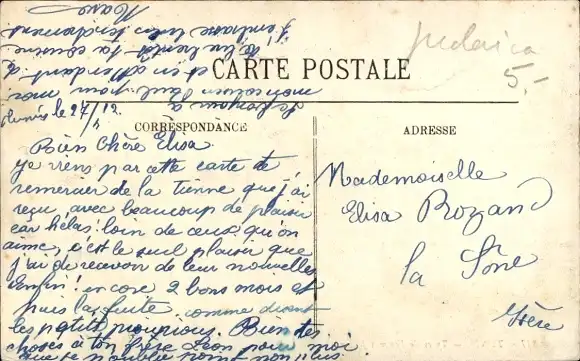 Judaica
5.-
CARTE POSTALE
CORRESPONDANCE
ADRESSE
le 27/ 12
Bien Chère Elisa
Je viens par cette carte te
remercier de la tienne que j'ai
reçu avec beaucoup de plaisir
car hélas! loin de ceux qu'on
aime, c'est le seul plaisir que
j'ai de recevoir de leur nouvelles
Enfin! encore 2 bons mois et
puis la fuite comme disent
les petits pioupious. Bien des
choses à ton frère Léon pour moi
que je n'oublie point non plus.
et en attendant
de lui bientôt la
J'embrasse bien tendrement
Mademoiselle
Elisa Rozand
la Sône
Isère